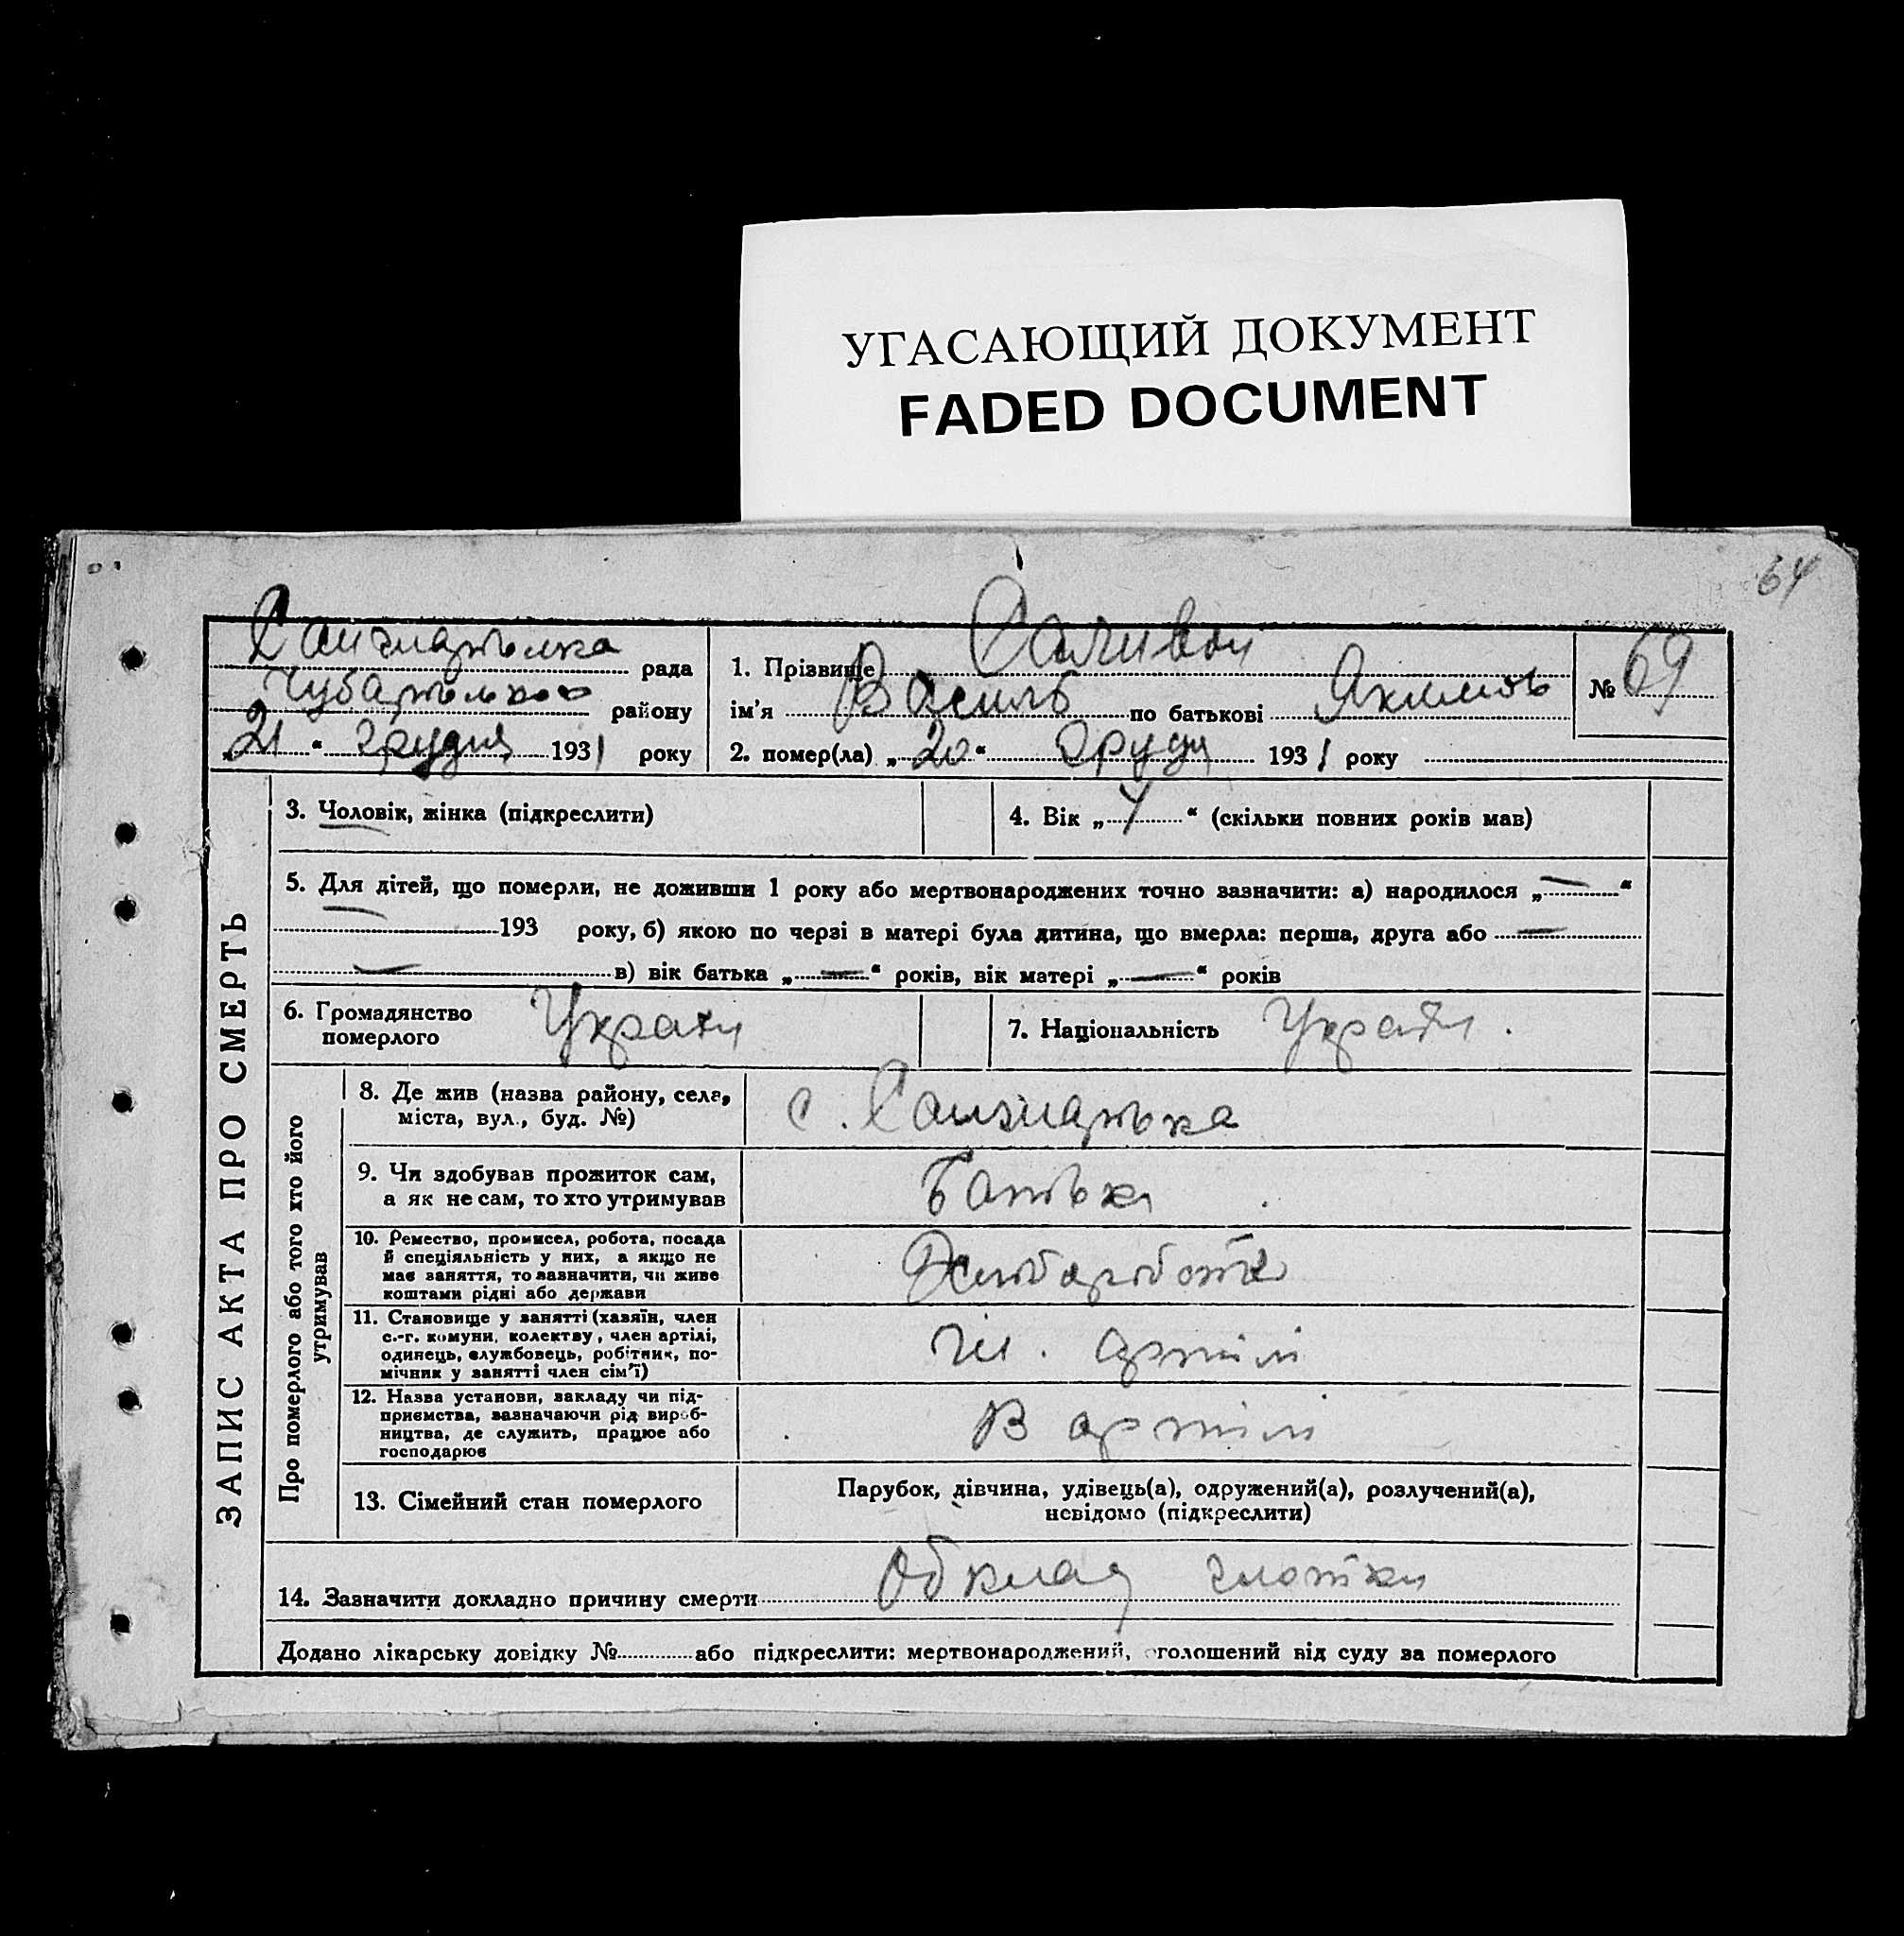 УГАСАЮЩИЙ ДОКУМЕНТ
FADED DOCUMENT
64
рада
району
„21“ грудня 1931 року
1. Прізвище Саливон
ім'я Василь по батькові Якимов
2. помер(ла) „20“ Грудня 1931 року
№ 69
ЗАПИС АКТА ПРО СМЕРТЬ
3. Чоловік, жінка (підкреслити)
4. Вік „4“ (скільки повних років мав)
5. Для дітей, що померли, не доживши 1 року або мертвонароджених точно зазначити: а) народилося „—“
— 193 року, б) якою по черзі в матері була дитина, що вмерла: перша, друга або —
— в) вік батька „—“ років, вік матері „—“ років
6. Громадянство
померлого
Украти
7. Національність Украти.
Про померлого або того хто його
утримував
8. Де жив (назва району, села,
міста, вул., буд. №)
с.
9. Чи здобував прожиток сам,
а як не сам, то хто утримував
Батьки
10. Ремество, промисел, робота, посада
й спеціяльність у них, а якщо не
має заняття, то зазначити, чи живе
коштами рідні або держави
Хліборобство
11. Становище у занятті (хазяїн, член
с.-г. комуни, колектву, член артілі,
одинець, службовець, робітник, по-
мічник у занятті член сім'ї)
чл. артілі
12. Назва установи, закладу чи під-
приємства, зазначаючи рід вироб-
ництва, де служить, працює або
господарює
В артілі
13. Сімейний стан померлого
Парубок, дівчина, удівець(а), одружений(а), розлучений(а),
невідомо (підкреслити)
14. Зазначити докладно причину смерти Обклад глотки
Додано лікарську довідку № або підкреслити: мертвонароджений, оголошений від суду за померлого